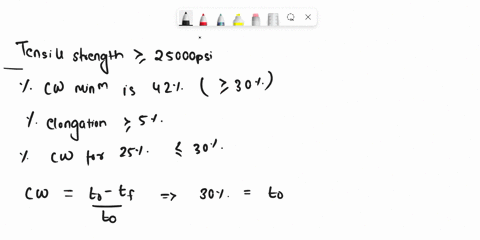 Tensile strength ≥ 25000psi
% CW minm is 42% ( ≥ 30% )
% elongation ≥ 5%
% CW for 25% ≤ 30%
CW = t0 - tf / t0 => 30% = t0